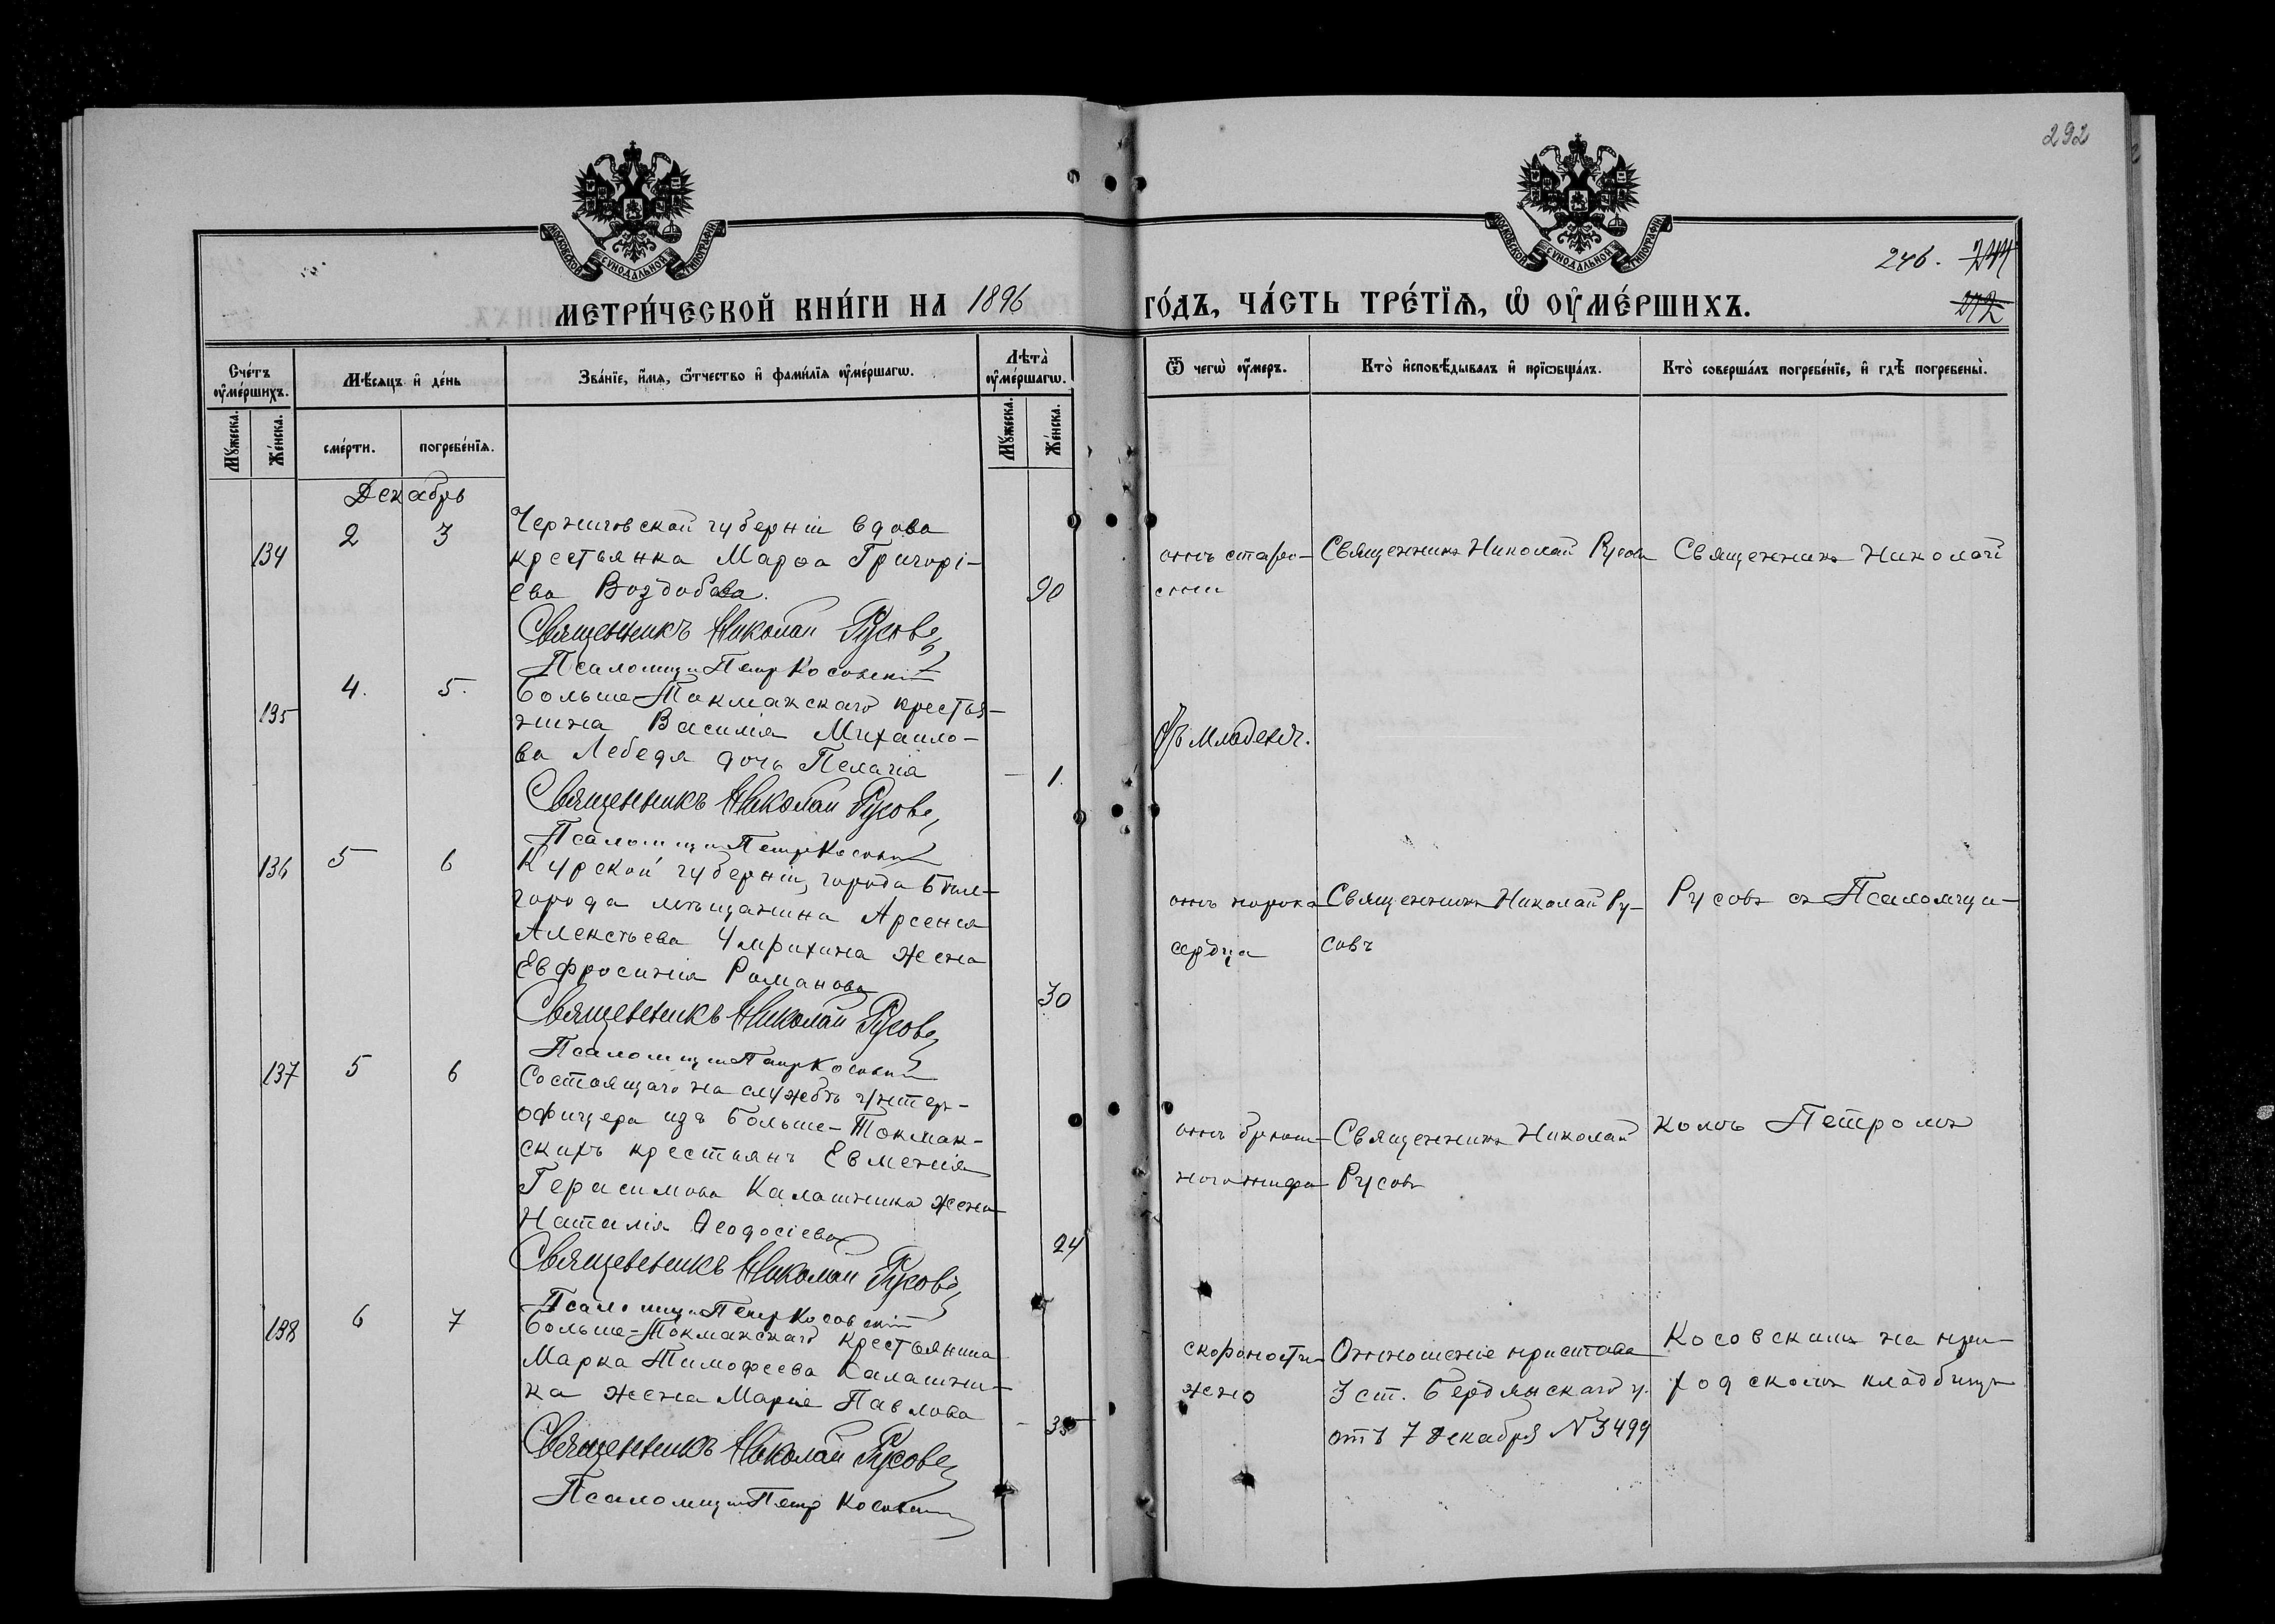 292
МОСКОВСКОЙ СУНОДАЛЬНОЙ ТИПОГРАФІИ
МОСКОВСКОЙ СУНОДАЛЬНОЙ ТИПОГРАФІИ
246. 244
272
МЕТРИ́ЧЕСКОЙ КНИ́ГИ НА 1896 ГО́ДЪ, ЧА́СТЬ ТРЕ́ТІѦ, Ѡ҆ ОУ҆МЕ́РШИХЪ.
Сче́тъ оу҆ме́ршихъ.
Мѣ́сяцъ и҆ де́нь
Зва́нїе, и҆́мѧ, ѻ҆́тчество и҆ фами́лїѧ оу҆ме́ршагѡ.
Лѣта̀ оу҆ме́ршагѡ.
Ѿ чегѡ̀ оу҆́меръ.
Кто̀ и҆сповѣ́дывалъ и҆ прїѡбща́лъ.
Кто̀ соверша́лъ погребе́нїе, и҆ гдѣ̀ погребены̀.
Мꙋ́жеска.
Же́нска.
сме́рти.
погребе́нїѧ.
Мꙋ́жеска.
Же́нска.
Декабрь
134 2 3 Черниговской губерніи вдова
крестьянка Марѳа Григорі-
ева Воздобова. 90
Священникъ Николай Русовъ
Псаломщи Петр Косовскій
отъ старо-
сти
Священникъ Николай Русовъ
Священникъ Николай
135 4. 5. Больше-Токмакскаго крестья-
нина Василія Михаило-
ва Лебедя дочь Пелагія – 1.
Священникъ Николай Русовъ
Псаломщи Петр Косовскій
От младенч.
136 5 6 Курской губерніи, города Бѣл-
города мѣщанина Арсенія
Алексѣева Умрихина жена
Евфросинія Романова 30
Священникъ Николай Русовъ
Псаломщи Петр Косовскій
отъ порока
сердца
Священникъ Николай Ру-
совъ
Русовъ съ Псаломщи-
137 5 6 Состоящаго на службѣ унтер-
офицера изъ Больше-Токмак-
скихъ крестьянъ Евменія
Герасимова Калашника жена
Наталія Ѳеодосіева 24
Священникъ Николай Русовъ
Псаломщи Петр Косовскій
отъ брюш-
ного тифа
Священникъ Николай
Русовъ
комъ Петромъ
138 6 7 Больше-Токмакскаго крестьянина
Марка Тимофеева Калашни-
ка жена Марія Павлова – 35
Священникъ Николай Русовъ
Псаломщи Петр Косовскій
скоропости-
жно
Отношеніе пристава
3 ст. Бердянскаго у.
отъ 7 декабря N 3499
Косовскимъ на при-
ходскомъ кладбищѣ